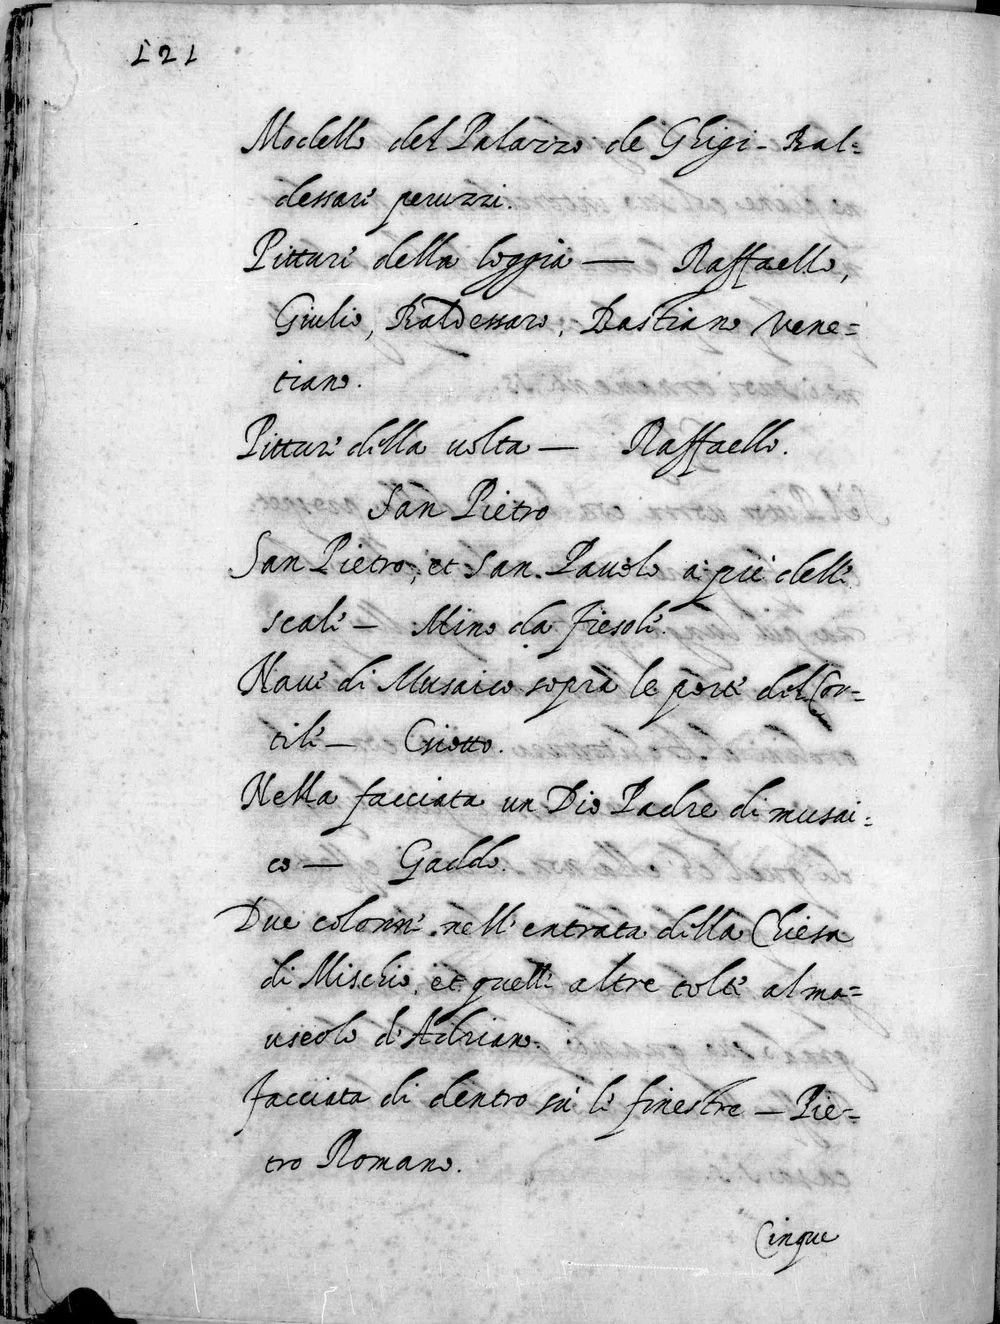 121
Modello del Palazzo de Ghigi - Bal=
dessare peruzzi.
Pitture della loggia — Raffaello,
Giulio, Baldessare, Bastiano Vene=
tiano.
Pitture della volta — Raffaello.
San Pietro
San Pietro, et San Pauolo a piè delle
scale — Mino da fiesole.
Naue di Musaico sopra le porte del Cor=
tile — Giotto.
Nella facciata un Dio Padre di musai=
co — Gaddo.
Due colonne nell'entrata della Chiesa
di Mischio, et quelle altre tolte al ma=
useolo d'Adriano.
facciata di dentro fà le finestre — Pie=
tro Romano.
Cinque